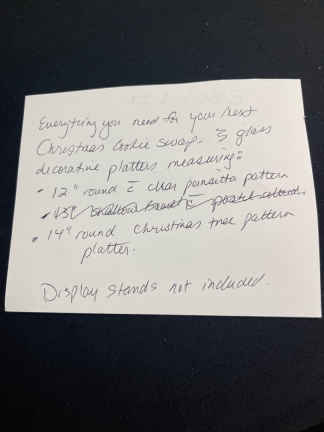 Everything you need for your next
Christmas Cookie Swap. 3 glass
decorative platters measuring:
• 12" round c̄ clear poinsettia pattern
• 14" round Christmas tree pattern
platter.
Display stands not included.